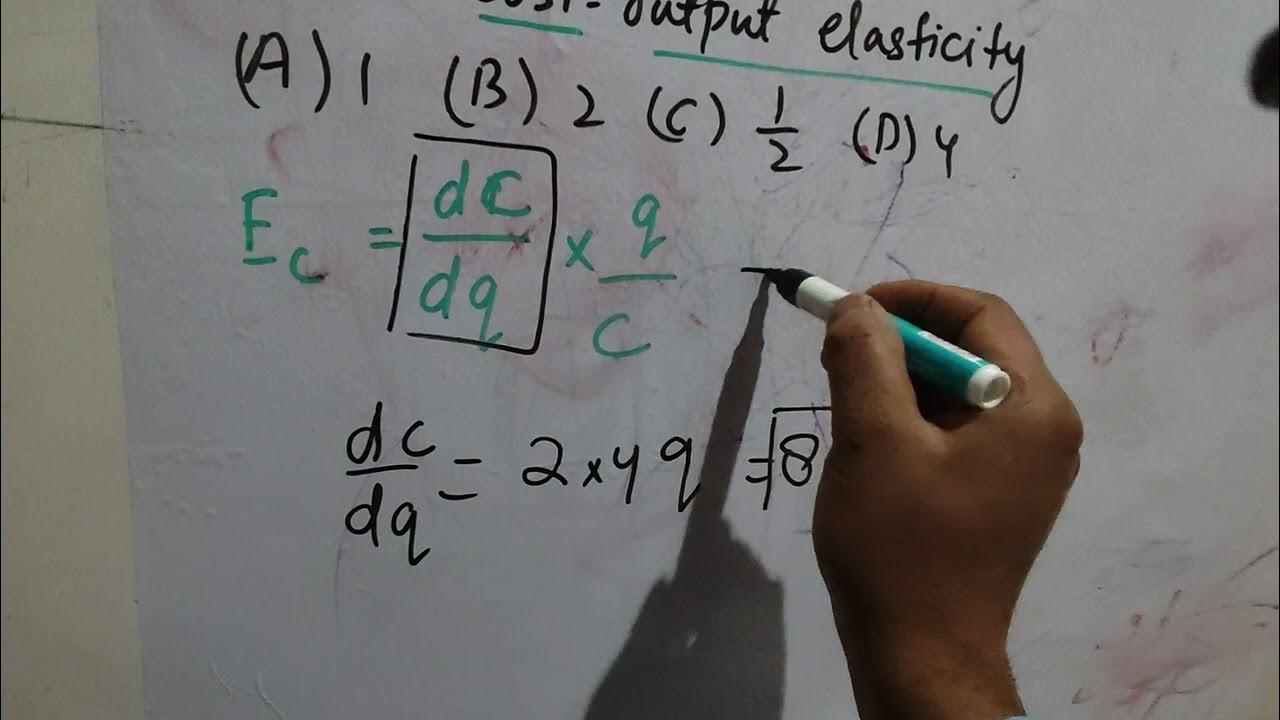 output elasticity
(A) 1 (B) 2 (C) 1/2 (D) 4
Ec = dC/dq × q/C
dc/dq = 2×4q = 8